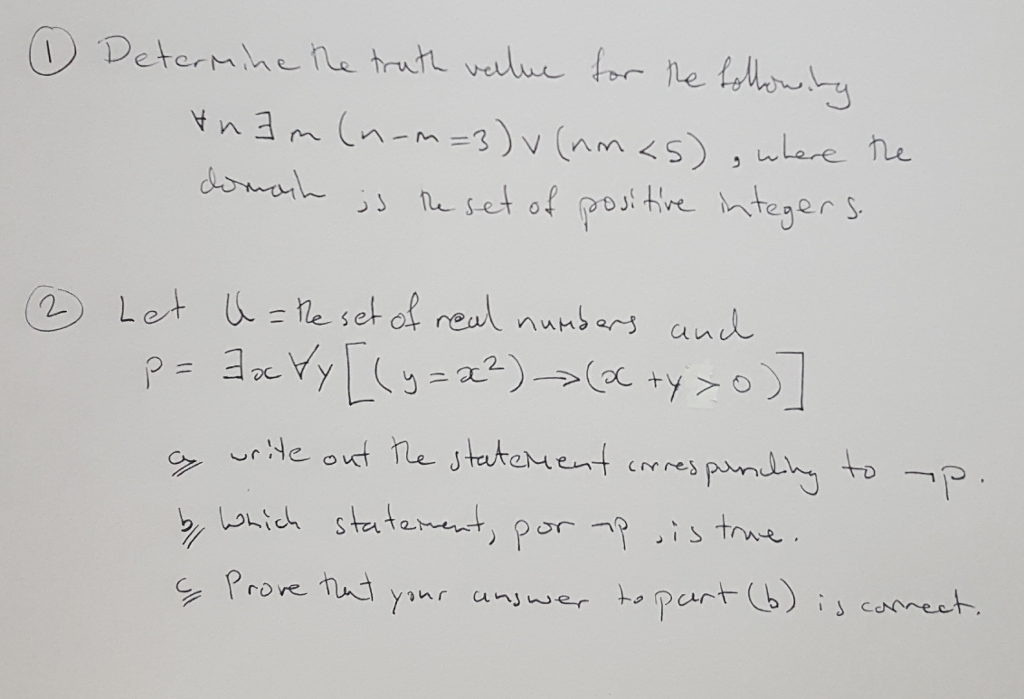 ① Determine the truth value for the following
∀n∃m (n-m=3) ∨ (nm<5), where the
domain is the set of positive integers.
② Let U = the set of real numbers and
p = ∃x∀y[(y=x²)→(x+y>0)]
a write out the statement corresponding to ¬p.
b, which statement, p or ¬p, is true.
c Prove that your answer to part (b) is correct.